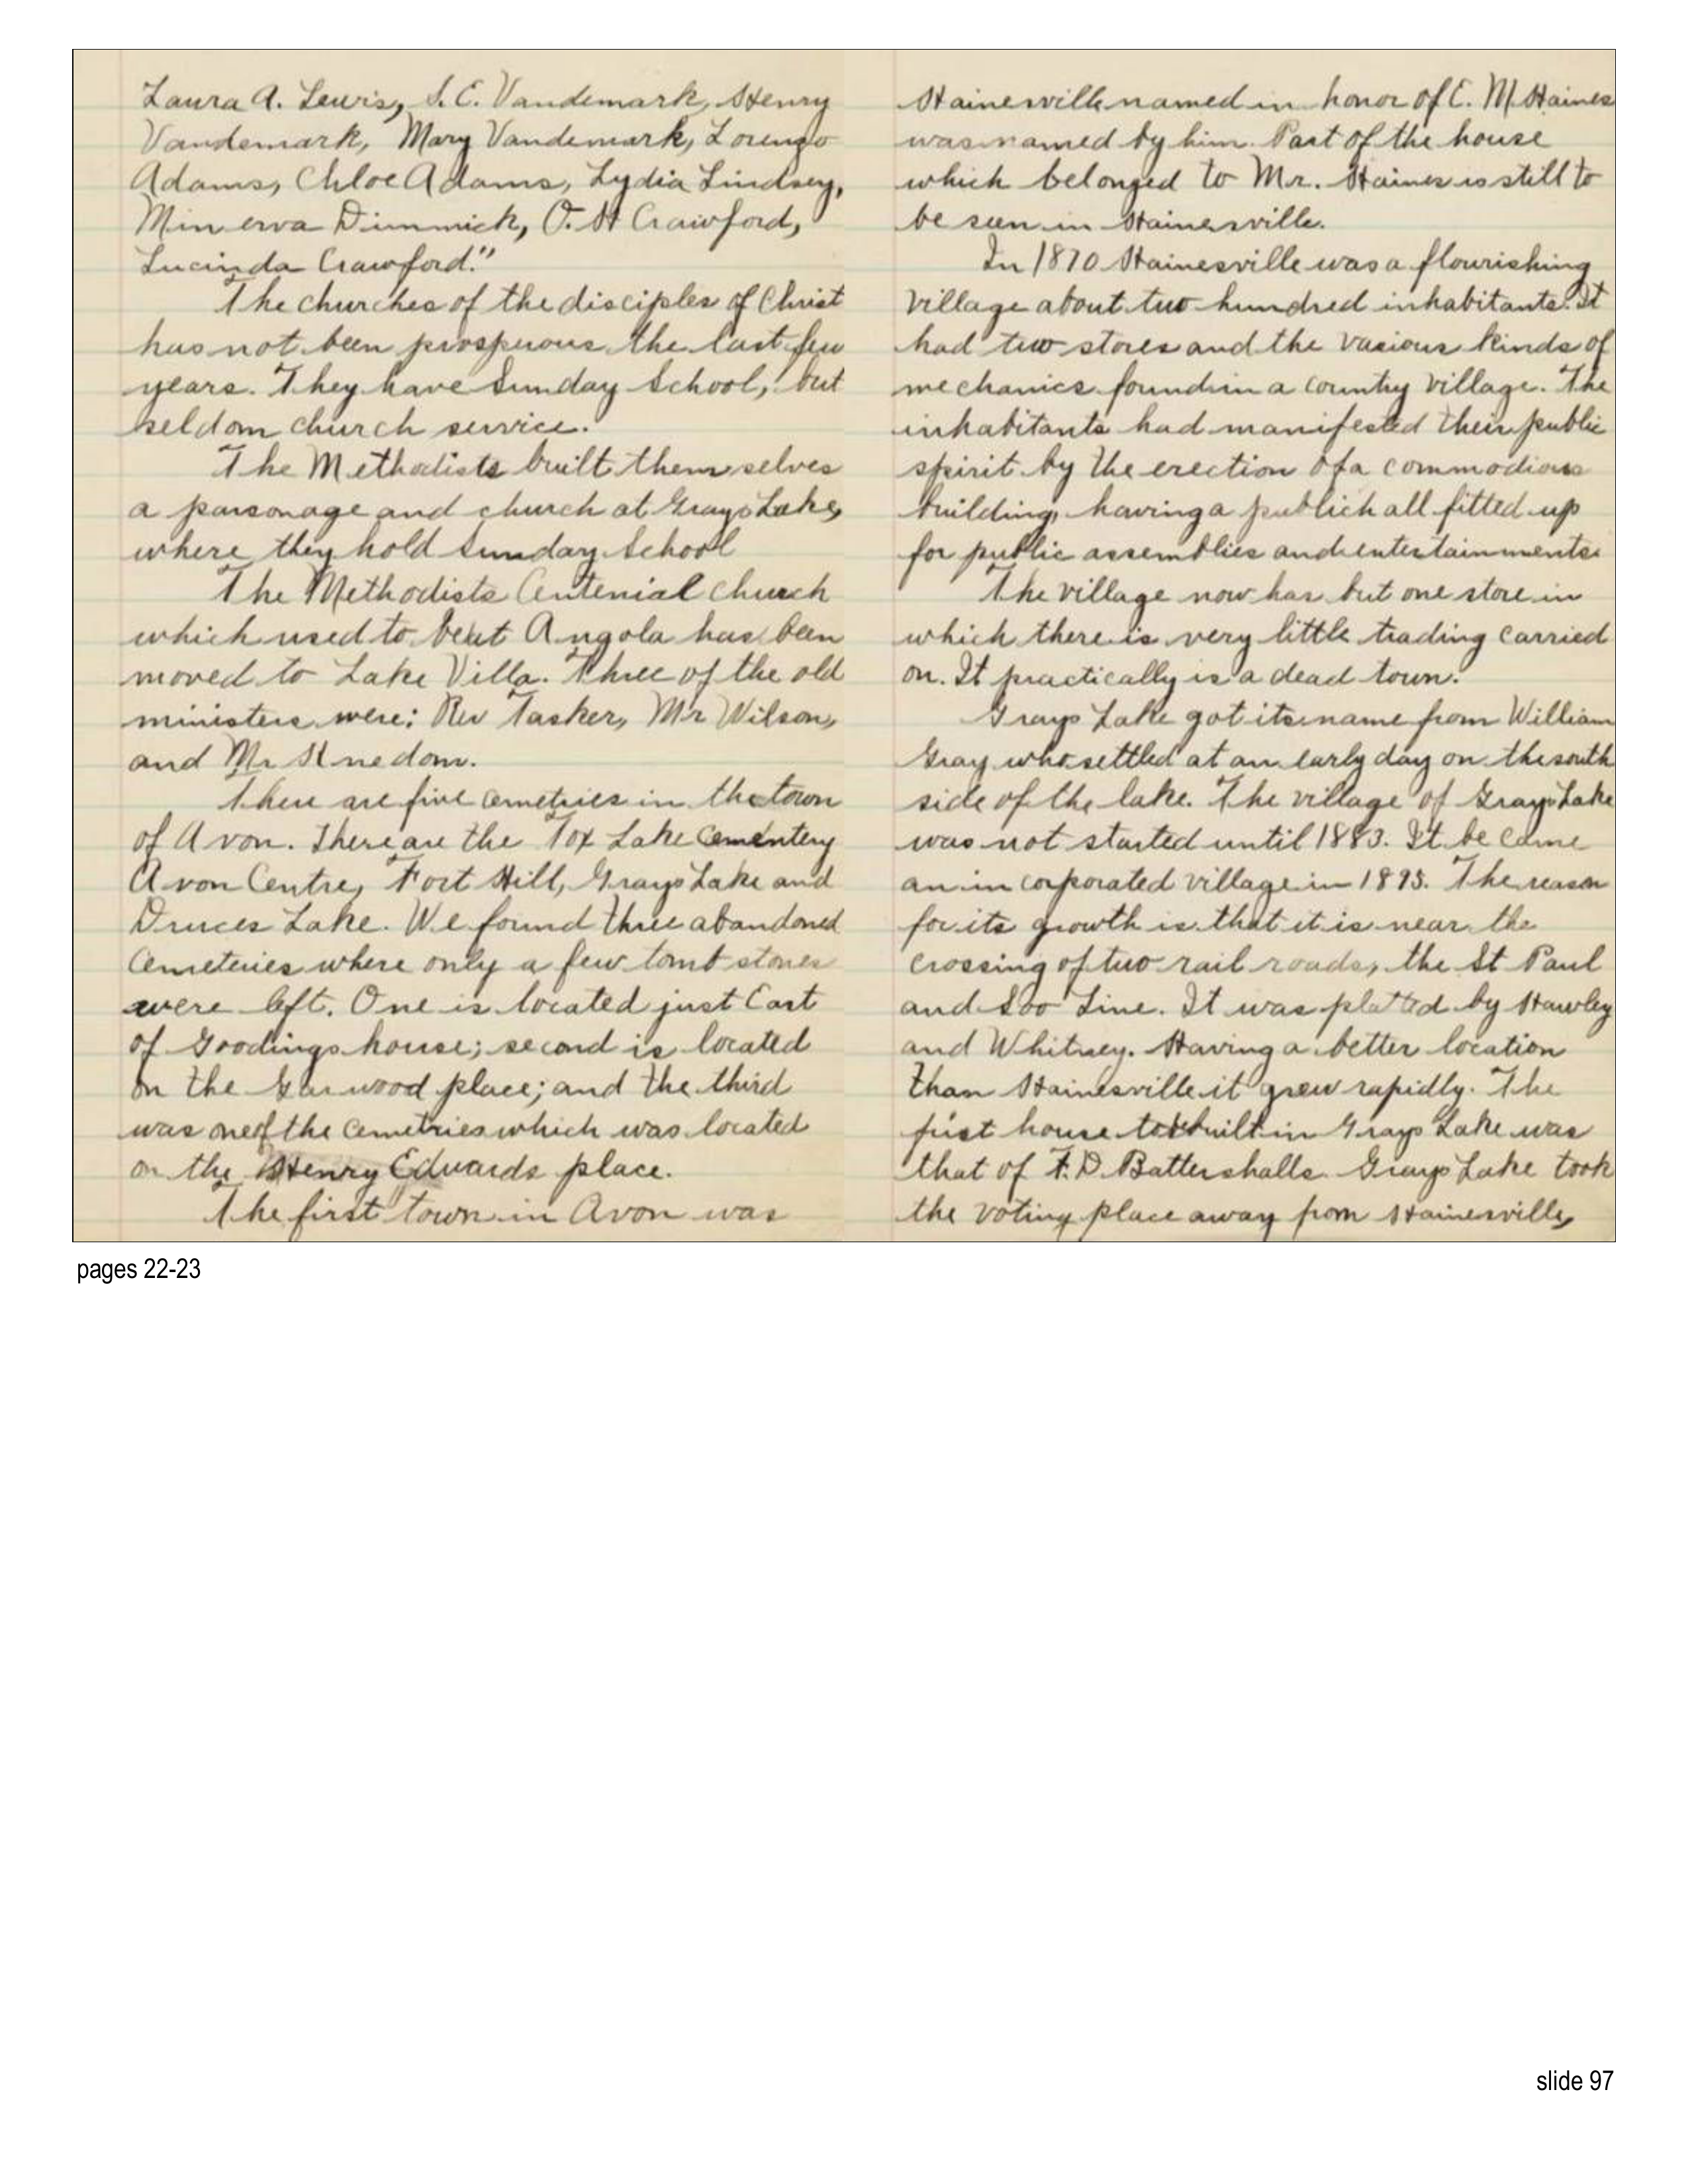 Laura A. Lewis, S. E. Vandemark, Henry
Vandemark, Mary Vandemark, Lorenzo
Adams, Chloe Adams, Lydia Lindsey,
Minerva Dimmick, O. H Crawford,
Lucinda Crawford."
The churches of the disciples of Christ
has not been prosperous the last few
years. They have Sunday School, but
seldom church service.
The Methodists built themselves
a parsonage and church at Grays Lake,
where they hold Sunday School
The Methodists Centenial church
which used to be at Angola has been
moved to Lake Villa. Three of the old
ministers were: Rev Tasker, Mr Wilson,
and Mr
There are five cemetries in the town
of Avon. There are the Fox Lake Cementery
Avon Centre, Fort Hill, Grays Lake and
Druces Lake. We found three abandoned
Cemeteries where only a few tomb stones
were left. One is located just East
of Goodings house; second is located
on the Garwood place; and the third
was one of the Cemetries which was located
on the Henry Edwards place.
The first town in Avon was
Hainesville named in honor of E. M. Haines
was named by him. Part of the house
which belonged to Mr. Haines is still to
be seen in Hainesville.
In 1870 Hainesville was a flourishing
village about two hundred inhabitants. It
had two stores and the various kinds of
mechanics found in a country village. The
inhabitants had manifested their public
spirit by the erection of a commodious
building, having a public hall fitted up
for public assemblies and entertainments.
The village now has but one store in
which there is very little trading carried
on. It practically is a dead town.
Grays Lake got its name from William
Gray who settled at an early day on the south
side of the lake. The village of Grays Lake
was not started until 1883. It be came
an in corporated village in 1895. The reason
for its growth is that it is near the
crossing of two rail roads, the St Paul
and Soo Line. It was platted by Hawley
and Whitney. Having a better location
than Hainesville it grew rapidly. The
first house built in Grays Lake was
that of F. D. Battershalls. Grays Lake took
the voting place away from Hainesville,
pages 22-23
slide 97